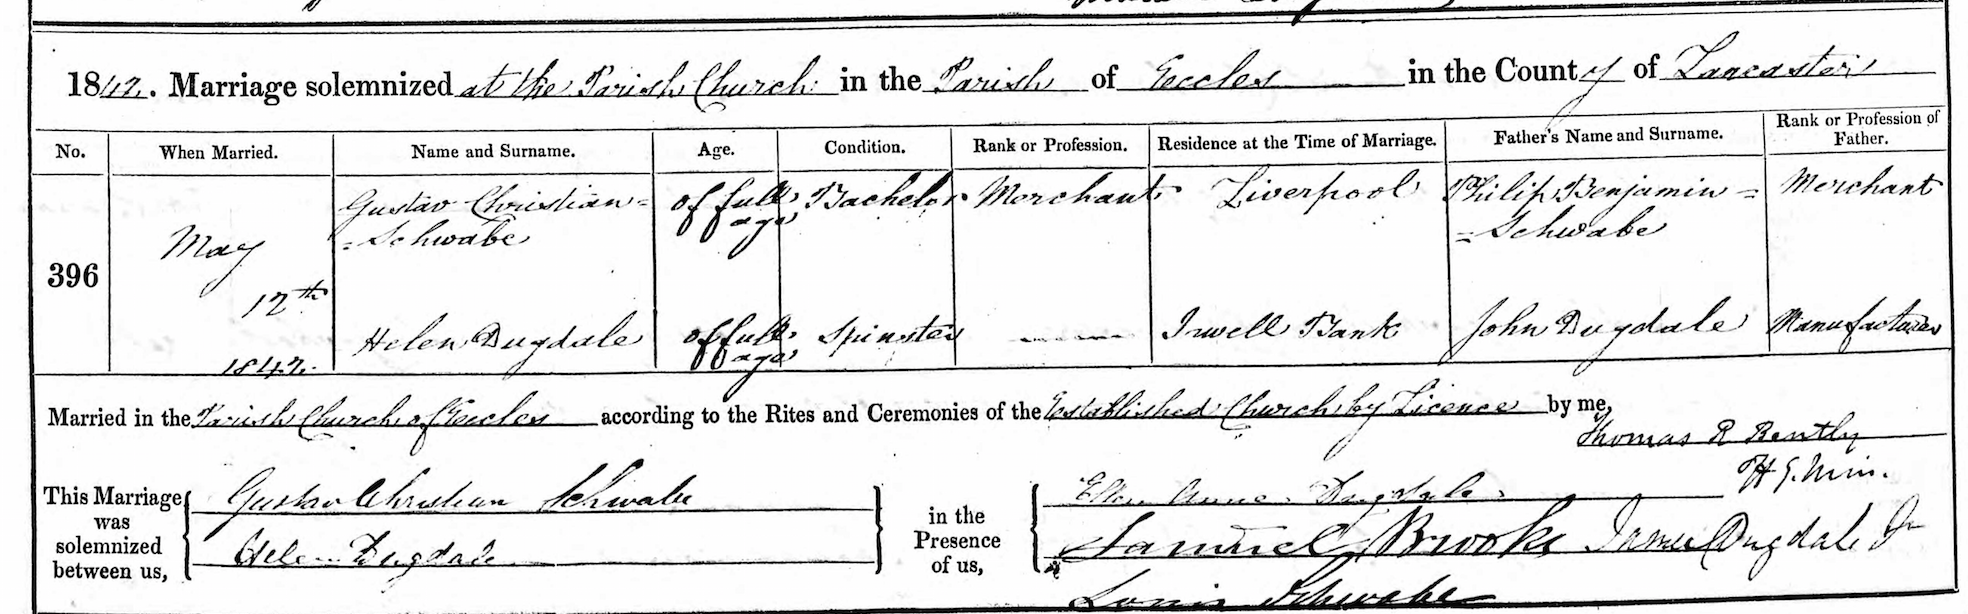 1842. Marriage solemnized at the Parish Church in the Parish of Eccles in the County of Lancaster
No. When Married. Name and Surname. Age. Condition. Rank or Profession. Residence at the Time of Marriage. Father's Name and Surname. Rank or Profession of Father.
396
May 12th 1842.
Gustav Christian= =Schwabe of full age Bachelor Merchant Liverpool Philip Benjamin= =Schwabe Merchant
Helen Dugdale of full age Spinster Irwell Bank John Dugdale Manufacturer
Married in the Parish Church of Eccles according to the Rites and Ceremonies of the Established Church by Licence by me,
Thomas R Bently
This Marriage was solemnized between us,
Gustav Christian Schwabe
Helen Dugdale
in the Presence of us,
Ellen Anne Dugdale
Samuel Brooks James Dugdale Jr
Louis Schwabe